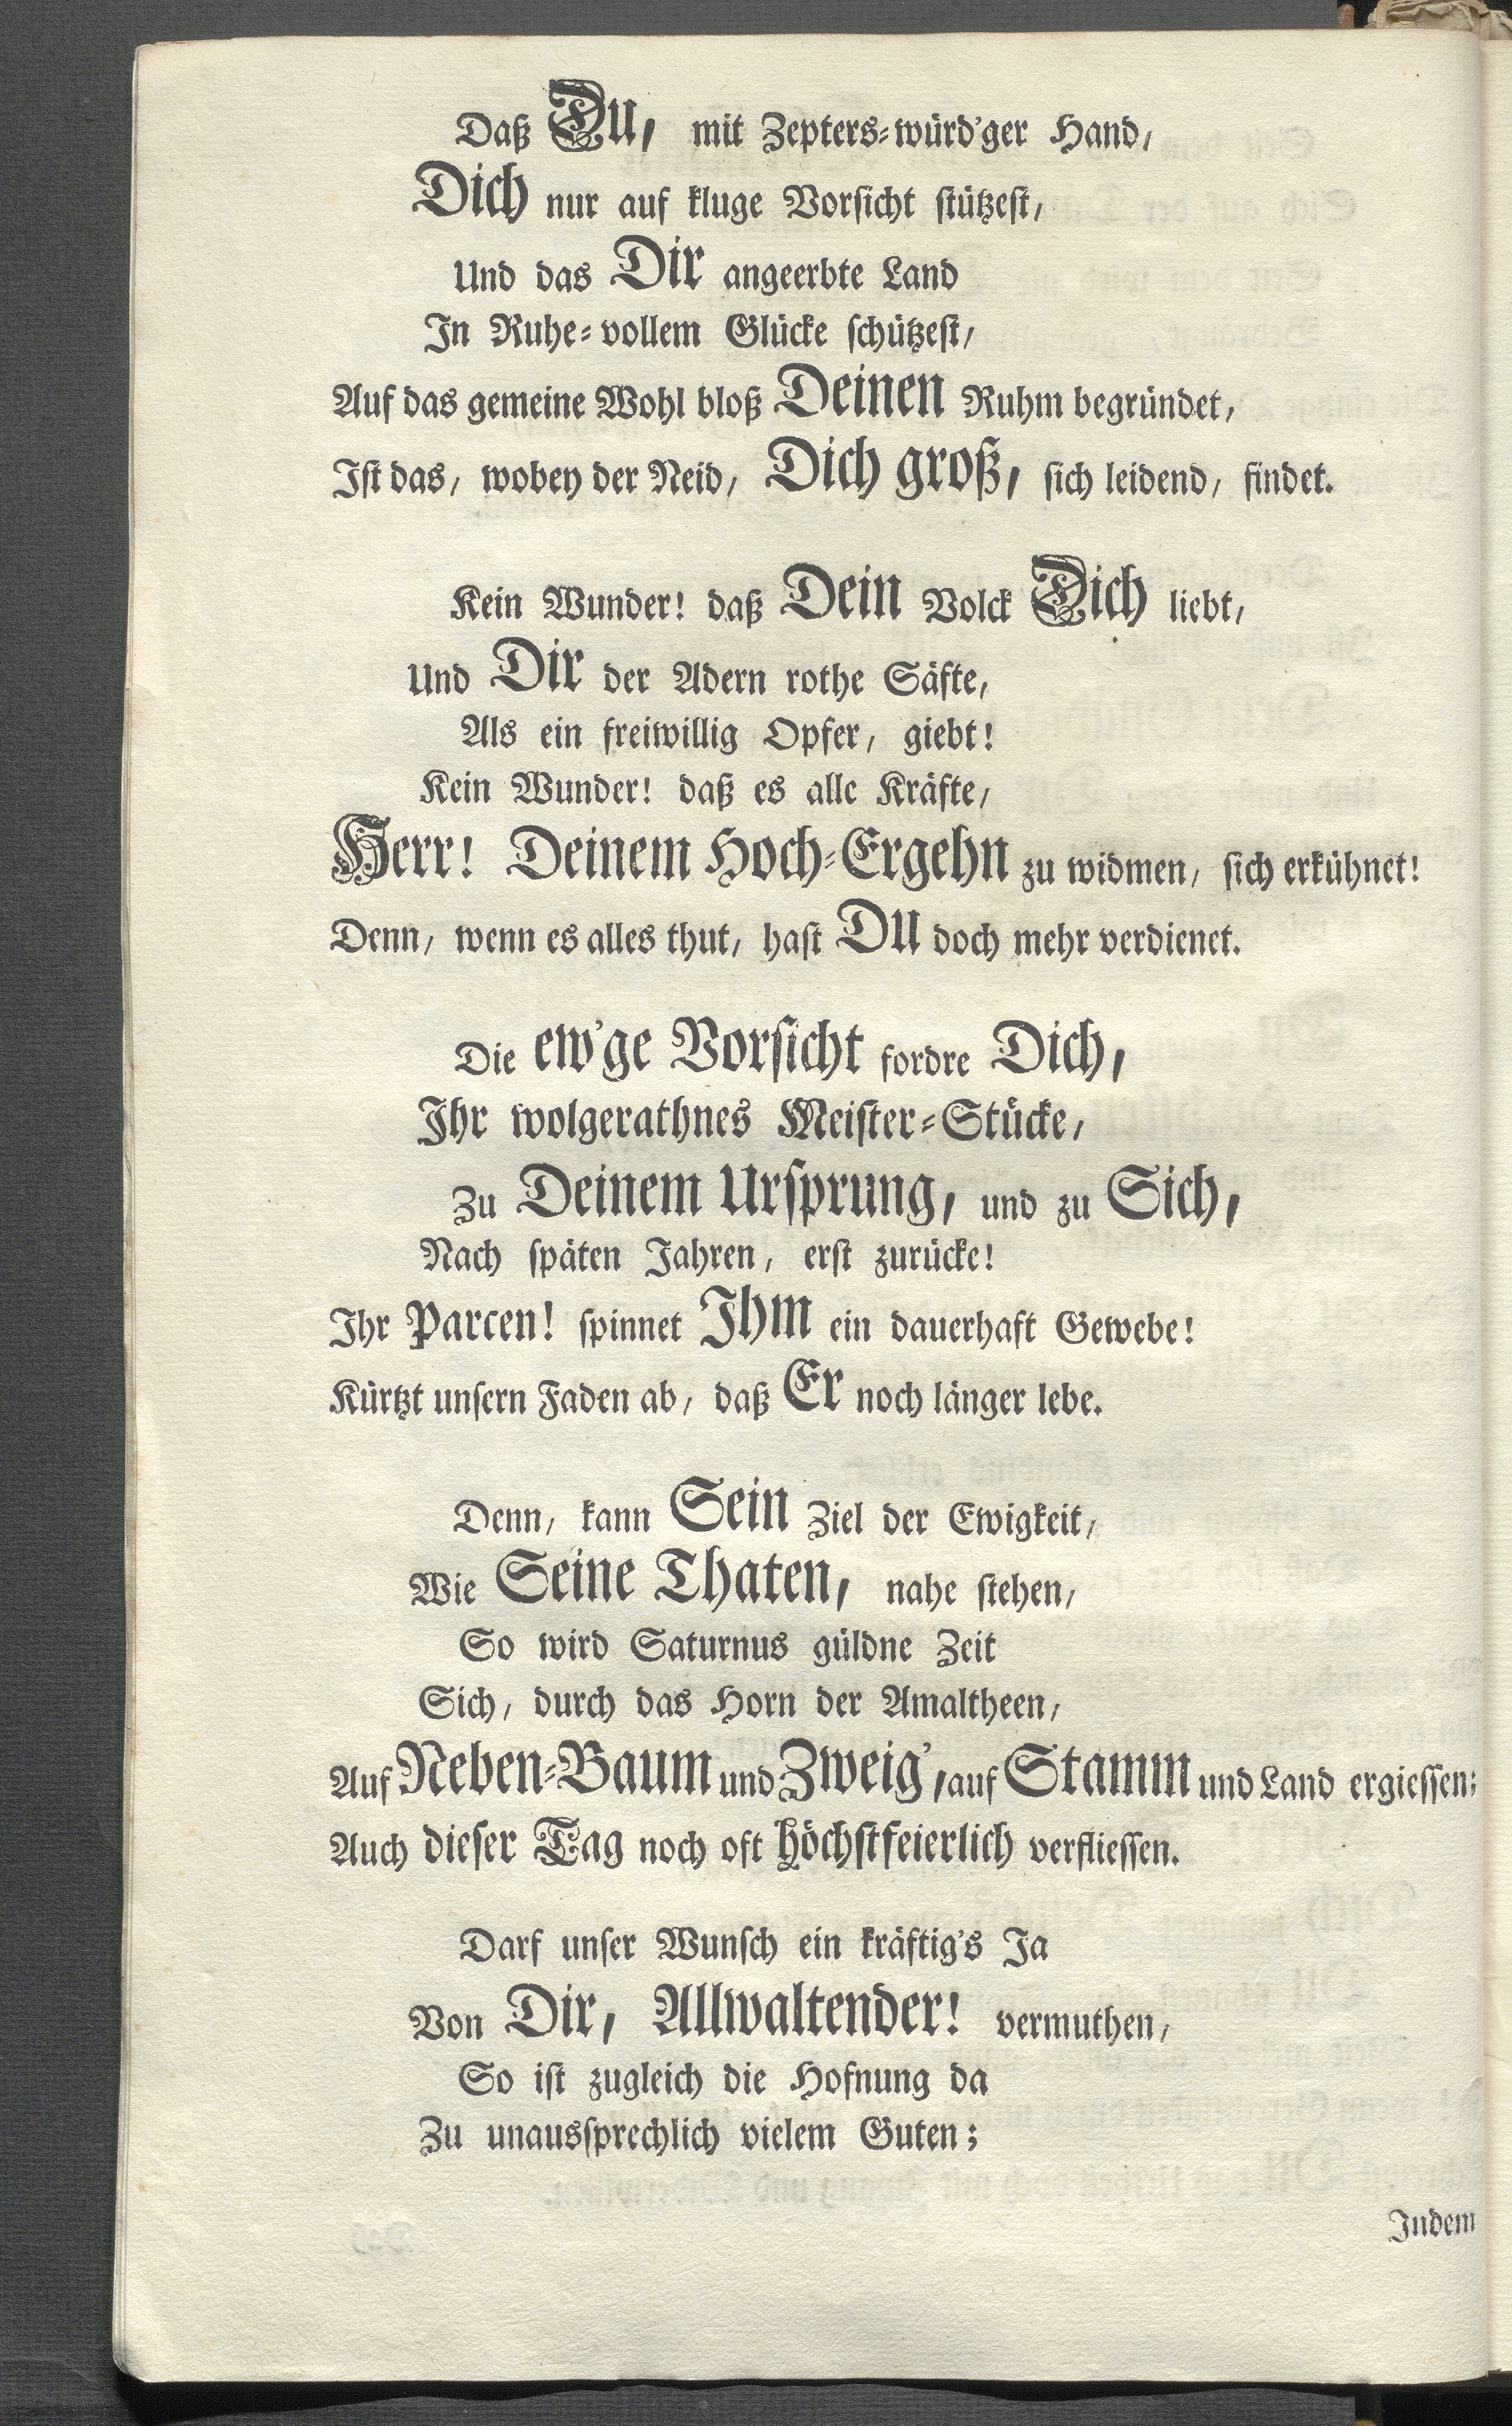 Daß Du, mit Zepters-würd'ger Hand,
Dich nur auf kluge Vorsicht stützest,
Und das Dir angeerbte Land
In Ruhe-vollem Glücke schützest,
Auf das gemeine Wohl bloß Deinen Ruhm begründet,
Ist das, wobey der Neid, Dich groß, sich leidend, findet.
Kein Wunder! daß Dein Volck Dich liebt,
Und Dir der Adern rothe Säfte,
Als ein freiwillig Opfer, giebt!
Kein Wunder! daß es alle Kräfte,
Herr! Deinem Hoch-Ergehn zu widmen, sich erkühnet!
Denn, wenn es alles thut, hast Du doch mehr verdienet.
Die ew'ge Vorsicht fordre Dich,
Ihr wolgerathnes Meister-Stücke,
Zu Deinem Ursprung, und zu Sich,
Nach späten Jahren, erst zurücke!
Ihr Parcen! spinnet Ihm ein dauerhaft Gewebe!
Kürtzt unsern Faden ab, daß Er noch länger lebe.
Denn, kann Sein Ziel der Ewigkeit,
Wie Seine Thaten, nahe stehen,
So wird Saturnus güldne Zeit
Sich, durch das Horn der Amaltheen,
Auf Neben-Baum und Zweig', auf Stamm und Land ergiessen;
Auch dieser Tag noch oft höchstfeierlich verfliessen.
Darf unser Wunsch ein kräftig's Ja
Von Dir, Allwaltender! vermuthen,
So ist zugleich die Hofnung da
Zu unaussprechlich vielem Guten;
Indem